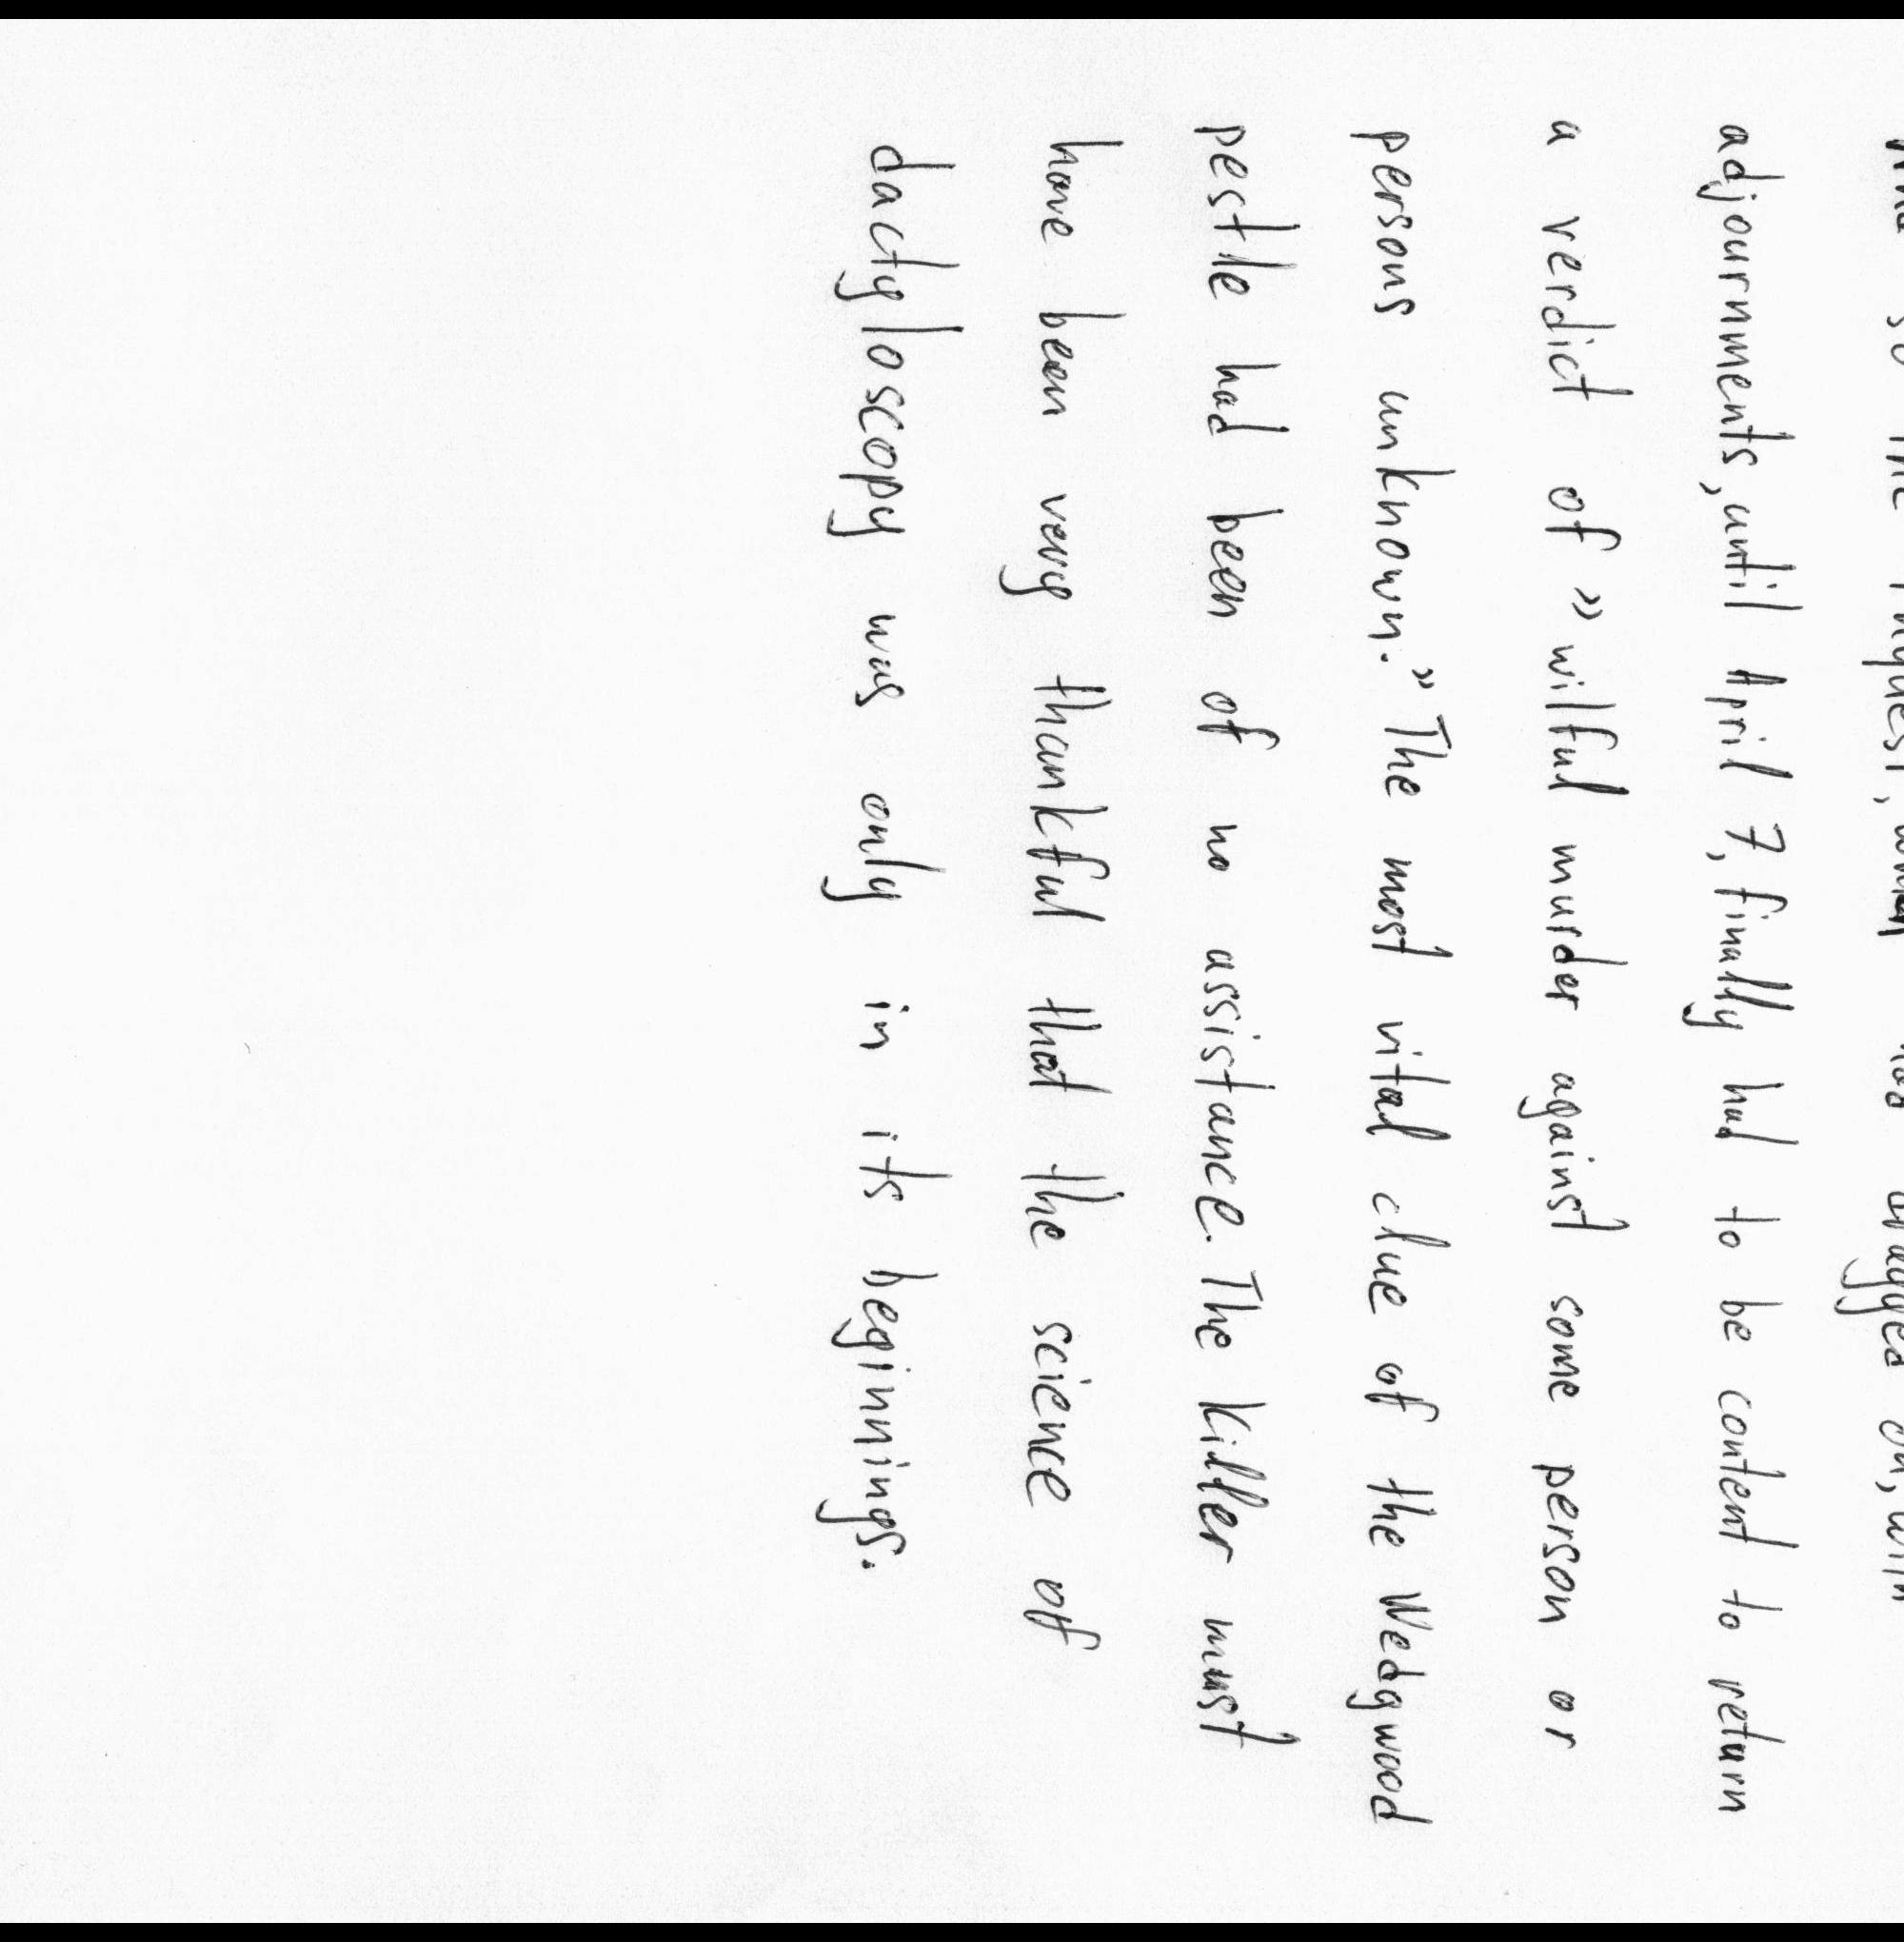 so the inquest, which had dragged on, with
adjournments, until April 7, finally had to be content to return
a verdict of » willful murder against some person or
persons unknown." The most vital clue of the Wedgwood
pestle had been of no assistance. The killer must
have been very thankful that the science of
dactyloscopy was only in its beginnings.